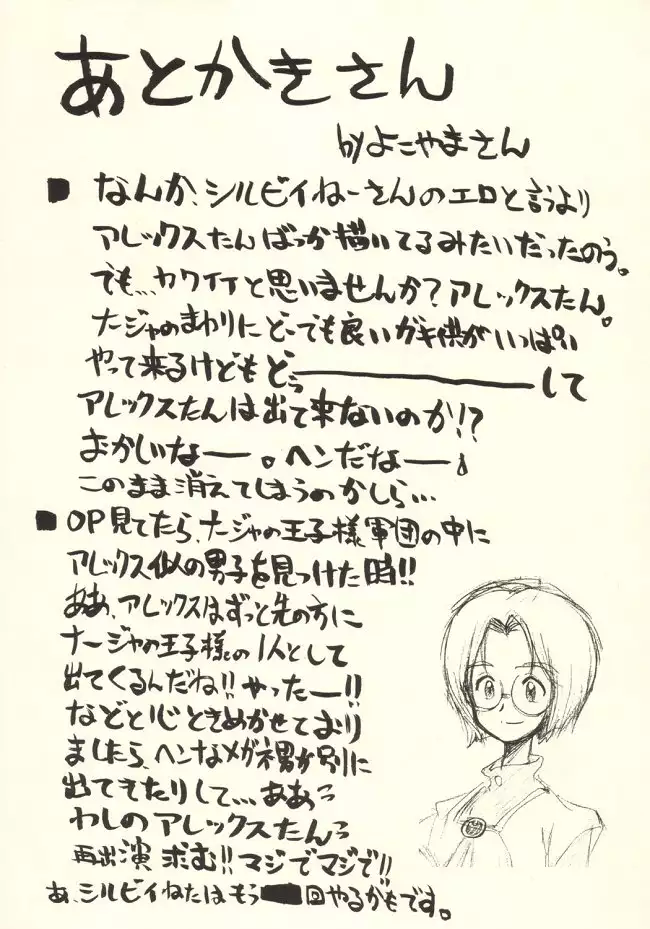 あとかきさん
byよこやまさん
■ なんか、シルビイねーさんのエロと言うより
アレックスたんばっか描いてるみたいだったのう。
でも…カワイイと思いませんか?アレックスたん。
ナージャのまわりにどーでも良いガキ供がいっぱい
やって来るけどもどぅーーーーーして
アレックスたんは出て来ないのか!?
おかしいなー。ヘンだなー。
このまま消えてしまうのかしら…
■ OP見てたら、ナージャの王子様軍団の中に
アレックス似の男子を見つけた時!!
ああ、アレックスはずっと先の方に
ナージャの王子様の1人として
出てくるんだね!!やったー!!
などと心ときめかせており
ましたら、ヘンなメガネ男が別に
出てきたりして…ああっ
わしのアレックスたんっ
再出演求む!!マジでマジで!!
あ、シルビイねたはもう 回やるかもです。